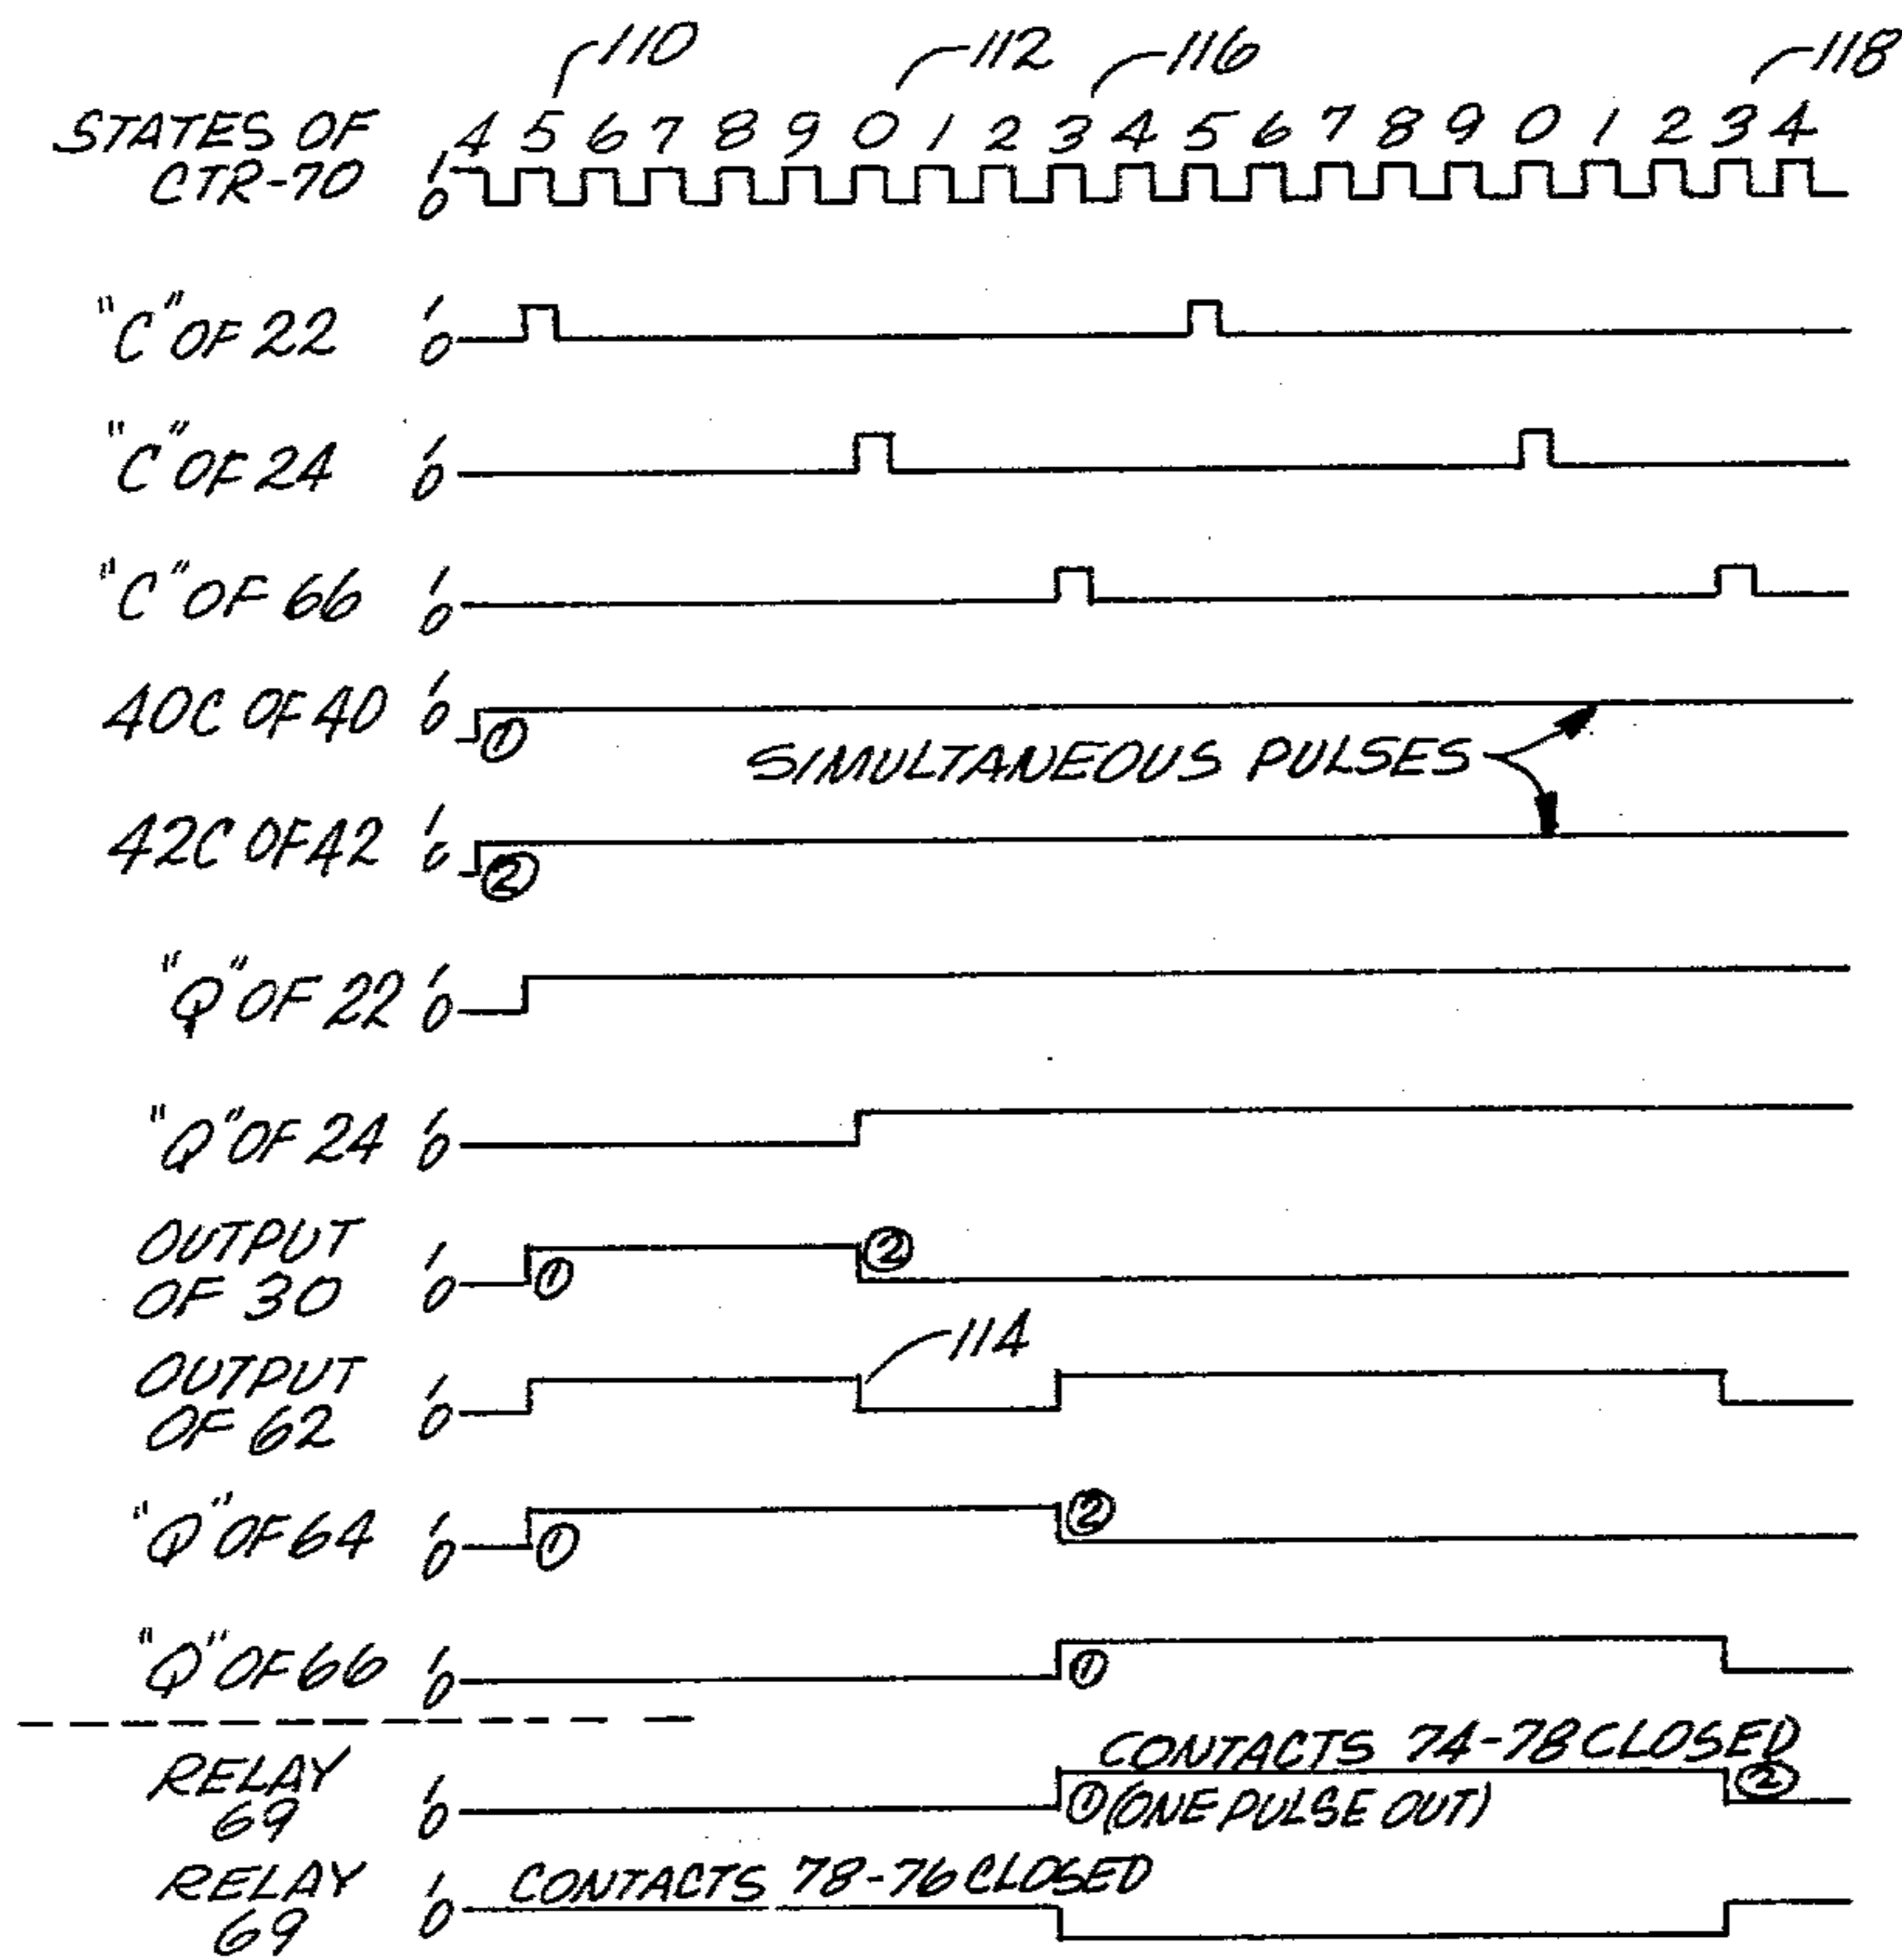 110 112 116 118
STATES OF 4 5 6 7 8 9 0 1 2 3 4 5 6 7 8 9 0 1 2 3 4
CTR-70 1 0
"C" OF 22 1 0
"C" OF 24 1 0
"C" OF 66 1 0
40C OF 40 1 0 ①
SIMULTANEOUS PULSES
42C OF 42 1 0 ②
"Q" OF 22 1 0
"Q" OF 24 1 0
OUTPUT 1 ②
OF 30 0 ①
114
OUTPUT 1
OF 62 0
"Q" OF 64 1 0 ① ②
"Q" OF 66 1 0 ①
CONTACTS 74-78 CLOSED
RELAY 1 ②
69 0 ① (ONE PULSE OUT)
RELAY 1 CONTACTS 78-76 CLOSED
69 0